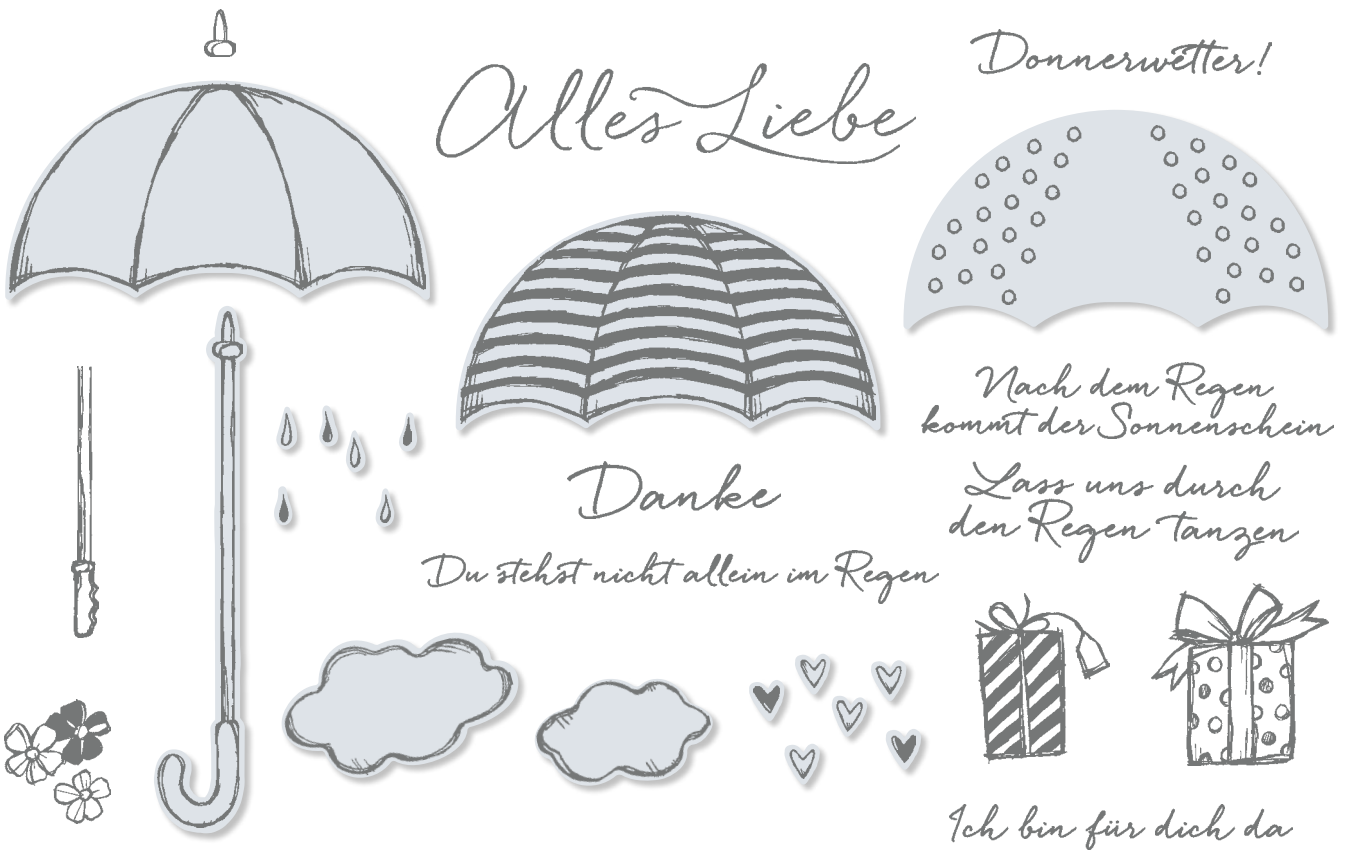 Donnerwetter!
Alles Liebe
Nach dem Regen
kommt der Sonnenschein
Lass uns durch
den Regen tanzen
Danke
Du stehst nicht allein im Regen
Ich bin für dich da